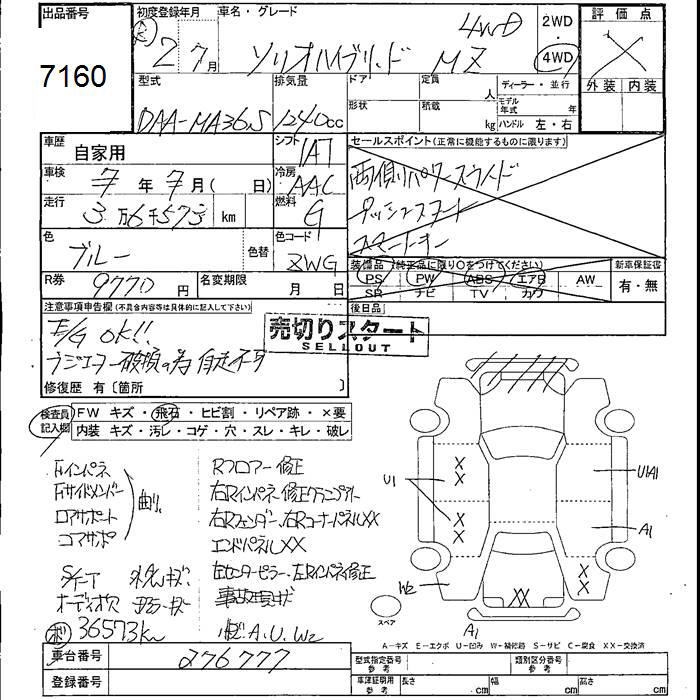 出品番号
7160
初度登録年月
2年 7月
車名・グレード
ソリオハイブリッド MZ 4WD
2WD
4WD
評価点
外装 内装
型式
DAA-MA36S
排気量
1240cc
ドア
形状
定員 人
積載 kg
ディーラー・並行
モデル年式 年
ハンドル 左・右
車歴
自家用
シフト
IAT
車検
7年 7月( 日)
冷房
AAC
走行
3万6千573 km
燃料
G
色
ブルー
色替
色コード
ZWG
R券
9770円
名変期限
月 日
セールスポイント(正常に機能するものに限ります)
両側パワースライド
プッシュスタート
スマートキー
装備品 (純正品に限り○をつけてください)
PS PW ABS エアB AW
SR ナビ TV カワ
新車保証書
有・無
後日品
注意事項申告欄(不具合内容等は具体的に記入して下さい)
E/G OK!!
ラジエター破損の為 自走不可
修復歴 有〔箇所 〕
売切りスタート
SELLOUT
検査員記入欄
FW キズ・飛石・ヒビ割・リペア跡・×要
内装 キズ・汚レ・コゲ・穴・スレ・キレ・破レ
Fインパネ
Fサイドメンバー
ロアサポート
コアサポ
曲り
Rフロアー修正
右Rインパネ修正
右Rフェンダー、右RコーナーパネルXX
エンドパネルXX
左センターピラー、左Rインパネ修正
事故現状
A.U.W2
36573km
U1
U1A1
A1
W2
XX
A1
スペア
A-キズ E-エクボ U-凹み W-補修跡 S-サビ C-腐食 XX-交換済
車台番号
276777
登録番号
型式指定番号 参考
類別区分番号 参考
車庫証明用 参考
長さ cm 幅 cm 高さ cm